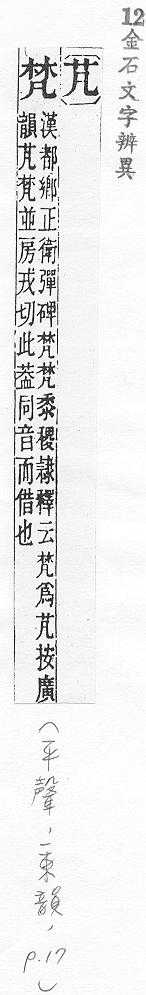 12金石文字辨異
芃
梵
漢都鄉正衛彈碑梵梵黍稷隸釋云梵爲芃按廣
韻芃梵並房戎切此葢同音而借也
(平聲,一東韻,p.17)